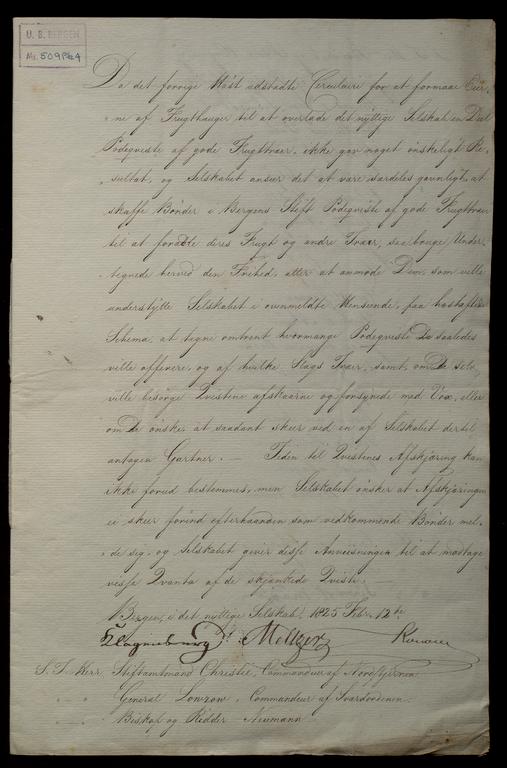 U. B. BERGEN
Ms. 509 Pk 4
Da det forrige Høst udstædte Circulaire for at formaae Eier-
ne af Frugthauger til at overlade det nyttige Selskab en Deel
Podeqviste af gode Frugttræer, ikke gav noget ønskeligt Re-
sultat, og Selskabet ansèer det at være særdeles gavnligt, at
skaffe Bønder i Bergens Stift Podeqviste af gode Frugttræer
til at forædle deres Frugt og andre Træer, saa bruge Under-
tegnede herved den Frihed, atter at anmode Dem, som ville
understytte Selskabet i ovenmeldte Henseende, paa hæftefter
Schema, at tegne omtrent hvormange Podeqviste De saaledes
ville offerere, og af hvilke Slags Træer, samt, om De selv
ville besørge Qvistene afskaarne og forsynede med Vox, eller
om De ønsker at saadant skeer ved en af Selskabet dertil
antagen Gartner. — Tiden til Qvistenes Afskjæring kan
ikke forud bestemmes, men Selskabet ønsker at Afskjæringen
ei skeer førend efterhaanden som vedkommende Bønder mel-
de sig, og Selskabet giver disse Anviisninger til at modtage
visse Qvanta af de skjænkede Qviste.
Bergen, i det nyttige Selskab, 1825 Febr. 12te
Hagerup Dt. Meltzer Konow
S. T. Herr Stiftamtmand Christie, Commandeur af Nordstjernen.
" " General Lowzow, Commandeur af Sværdordenen.
" " Biskop og Ridder Neumann.